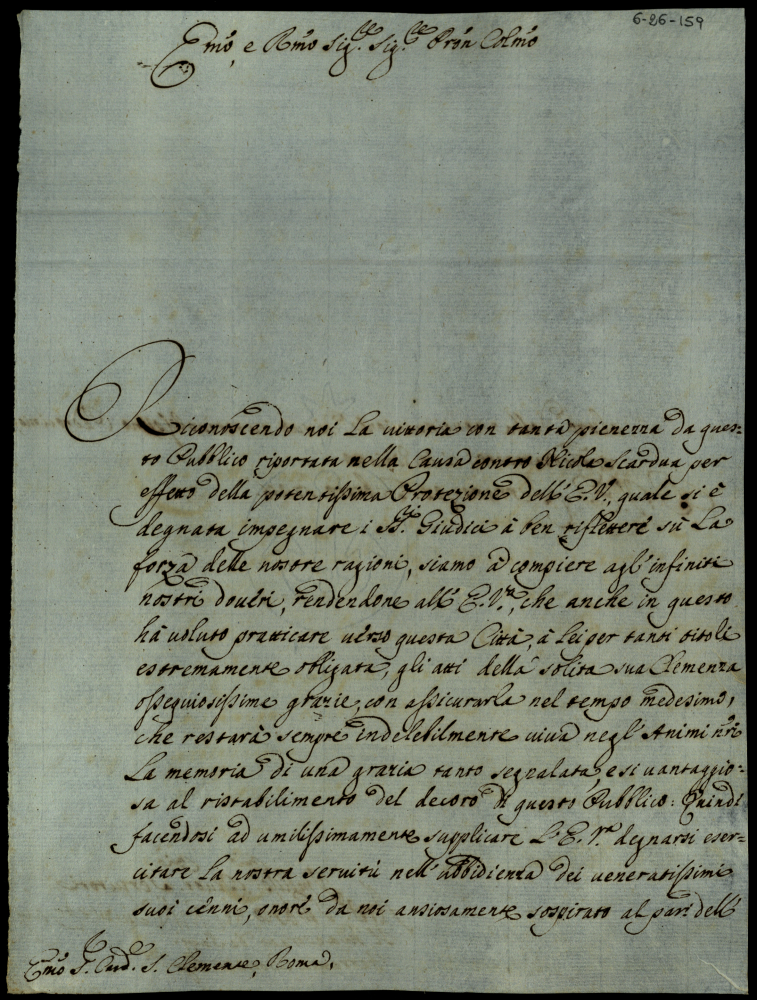 6-26-159
Emo, e Rmo Sig.re Sig.re Prõn Colmo
Riconoscendo noi La vittoria con tanta pienezza da ques=
to Pubblico riportata nella Causa contro Nicola Scardua per
effetto della potentissima Protezione dell'E.V., quale si è
degnata impegnare i SS.ri Giudici à ben riflettere sù La
forza delle nostre ragioni, siamo à compiere agl'infiniti
nostri doveri, rendendone all'E.V.ra, che anche in questo
hà voluto pratticare verso questa Città, à Lei per tanti titoli
estremamente obligata, gli atti della solita sua Clemenza
ossequiosissime grazie, con assicurarla nel tempo medesimo,
che restarà sempre indelebilmente viva negl'Animi nrĩ
La memoria di una grazia tanto segnalata, e si vantaggio=
sa al ristabilimento del decoro di questo Pubblico: Quindi
facendosi ad umilissimamente supplicare L'E.V.ra degnarsi eser=
citare La nostra servitù nell'ubbidienza dei veneratissimi
suoi cenni, onore da noi ansiosamente sospirato al pari dell'
Emo S.r Card.le S. Clemente, Roma,